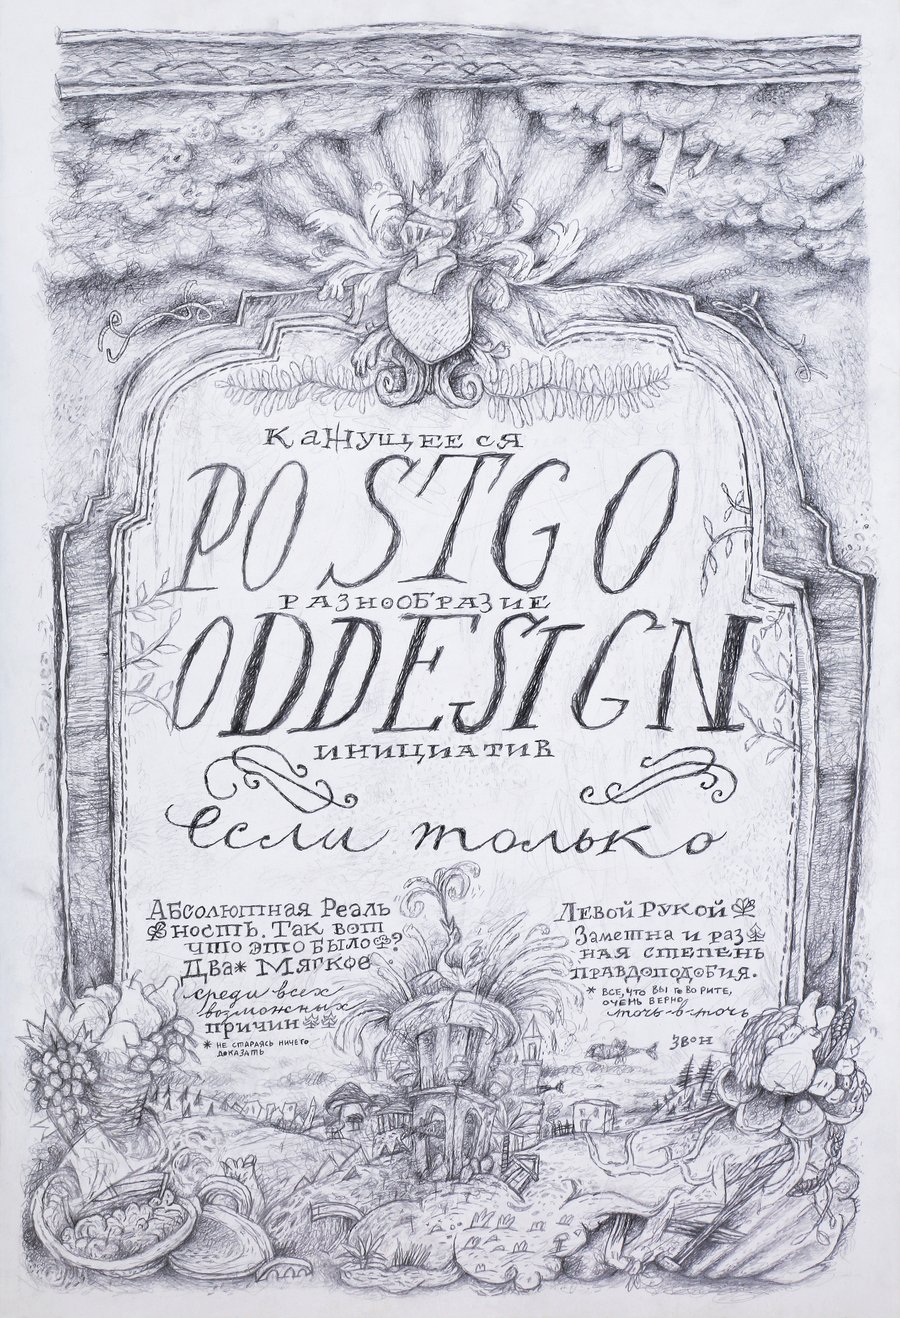 КаЖущееся
POSTGO
Разнообразие
ODDESIGN
инициатив
если только
Абсолютная Реаль
ность. Так вот
что это было?
Два* Мягкое
среди всех
возможных
причин
* не стараясь ничего
доказать
Левой Рукой
Заметна и раз
ная степень
правдоподобия.
* все, что вы говорите,
очень верно
точь-в-точь
звон